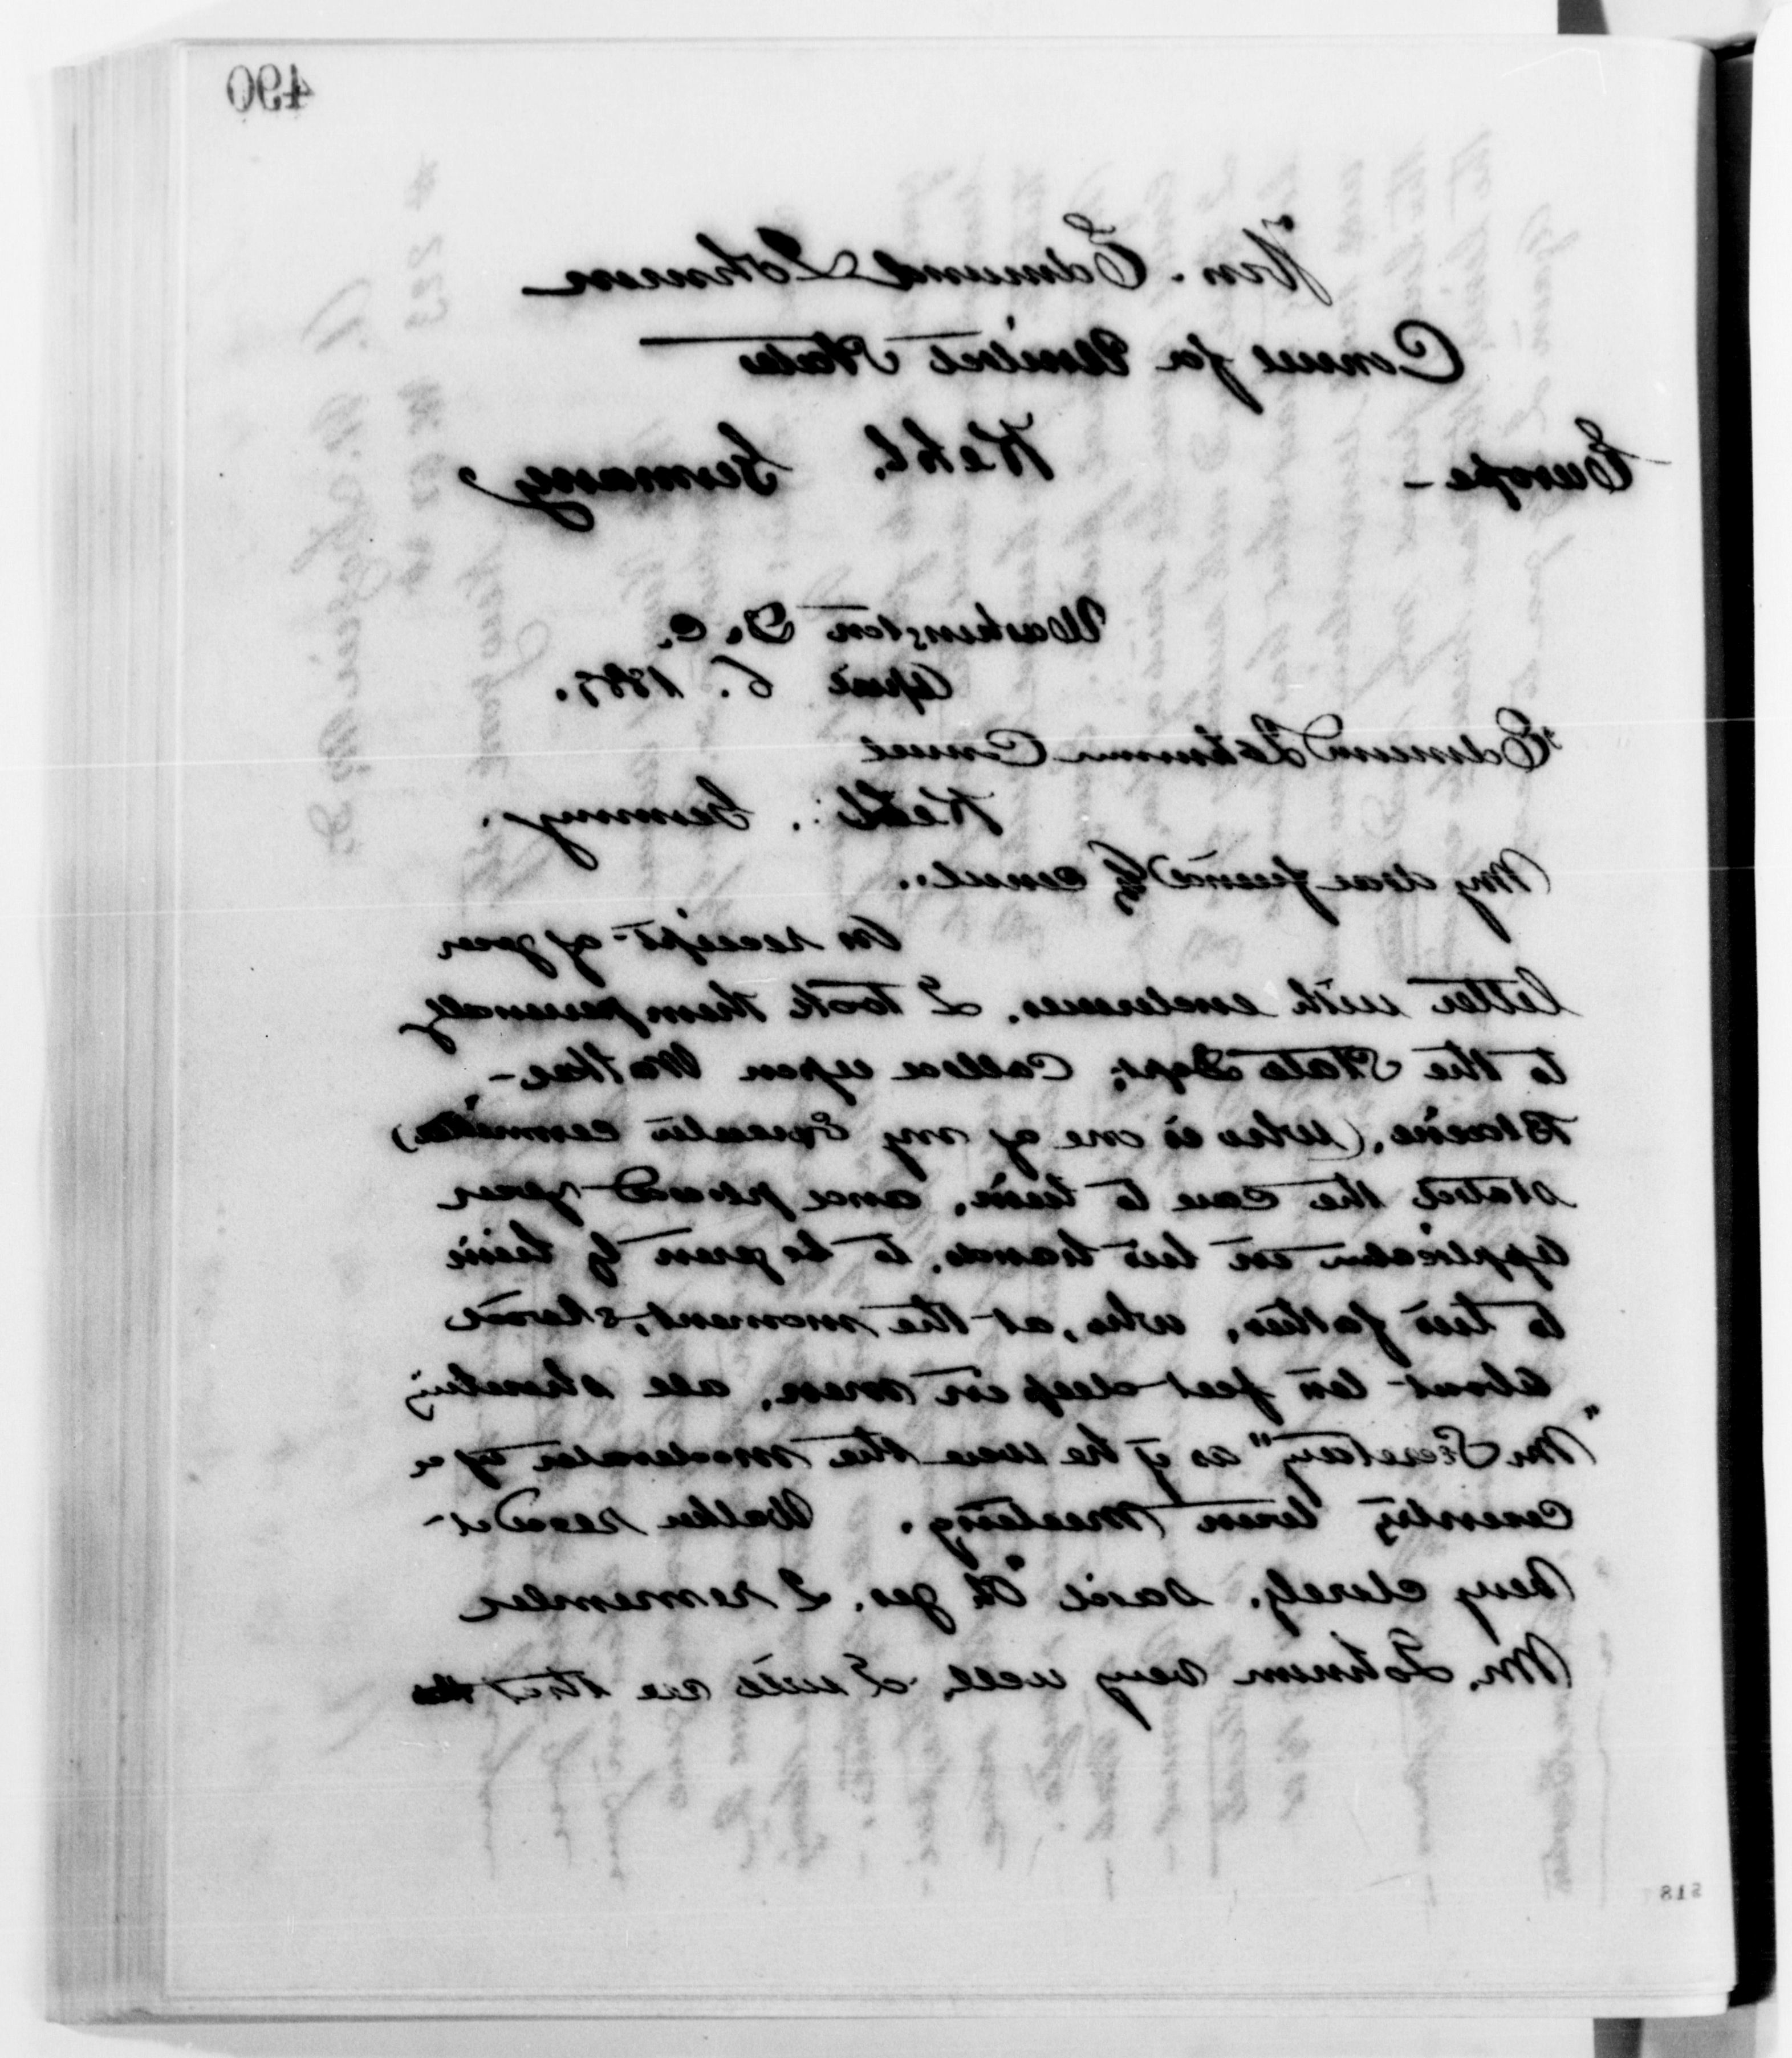 490
Hon. Edmund Johnson
Consul for United States
Europe - Kehl, Germany
Washington D. C.
April 6. 1889.
Edmund Johnson Consul
Kehl: Germany.
My dear friend & consul.
On receipt of your
letter with enclosures, I took them personally
to the State Dept; Called upon Walker
Blaine, (who is one of my Executive committee)
stated the case to him, and placed your
application in his hands, to be given by him
to his father, who, at the moment, stood
about ten feet deep in men, all shouting
"Mr Secretary" as if he were the moderator of a
country town meeting. Walker read it
very closely, said "Oh yes, I remember
Mr. Johnson very well, I will see that the
518